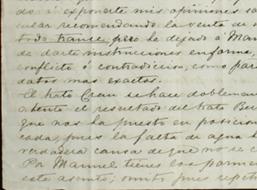 é exponerte mis opiniones
cular recomendando la venta de
todo trance, pero he dejado á
de darte instrucciones en forma,
conflicto ó contradicción, como par
datos mas exactos.
El trato Cean se hace doblemen
atento el resultado del trato
que nos ha puesto en posicion
cada, pues la falta de agua
verdadera causa de que no se
Por Manuel tienes los pormen
este asunto, omito pues repetir